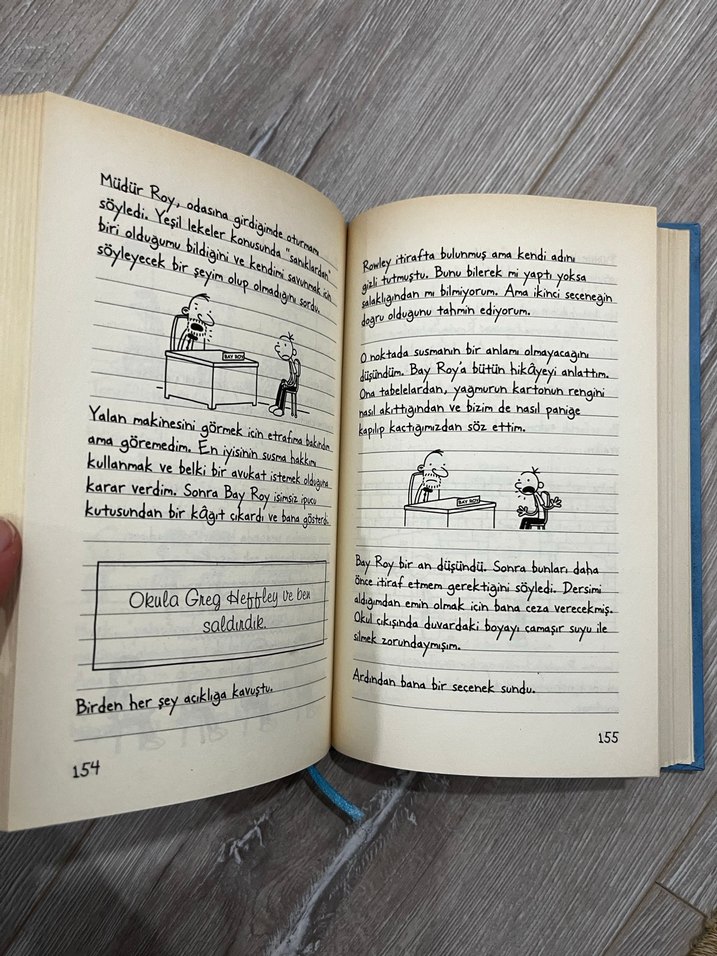 Müdür Roy, odasına girdiğimde oturmamı
söyledi. Yeşil lekeler konusunda "sanıklardan"
biri olduğumu bildiğini ve kendimi savunmak için
söyleyecek bir şeyim olup olmadığını sordu.
BAY ROY
Yalan makinesini görmek için etrafıma bakındım
ama göremedim. En iyisinin susma hakkımı
kullanmak ve belki bir avukat istemek olduğuna
karar verdim. Sonra Bay Roy isimsiz ipucu
kutusundan bir kâğıt çıkardı ve bana gösterdi.
Okula Greg Heffley ve ben
saldırdık.
Birden her şey açıklığa kavuştu.
154
Rowley itirafta bulunmuş ama kendi adını
gizli tutmuştu. Bunu bilerek mi yaptı yoksa
salaklığından mı bilmiyorum. Ama ikinci seçeneğin
doğru olduğunu tahmin ediyorum.
O noktada susmanın bir anlamı olmayacağını
düşündüm. Bay Roy'a bütün hikâyeyi anlattım.
Ona tabelelardan, yağmurun kartonun rengini
nasıl akıttığından ve bizim de nasıl paniğe
kapılıp kaçtığımızdan söz ettim.
BAY ROY
Bay Roy bir an düşündü. Sonra bunları daha
önce itiraf etmem gerektiğini söyledi. Dersimi
aldığımdan emin olmak için bana ceza verecekmiş.
Okul çıkışında duvardaki boyayı çamaşır suyu ile
silmek zorundaymışım.
Ardından bana bir seçenek sundu.
155